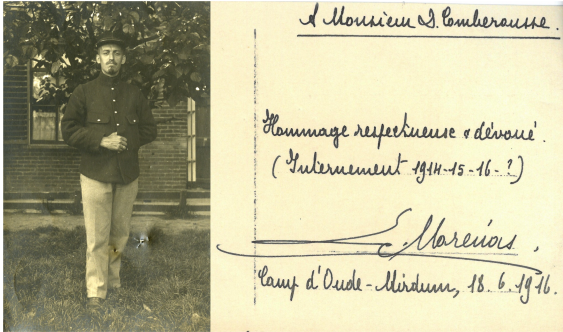 A Monsieur D. Comberousse.
Hommage respectueuse & dévoué.
(Internement 1914-15-16-?)
E. Marenas.
Camp d'Oude-Mirdum, 18.6.1916.